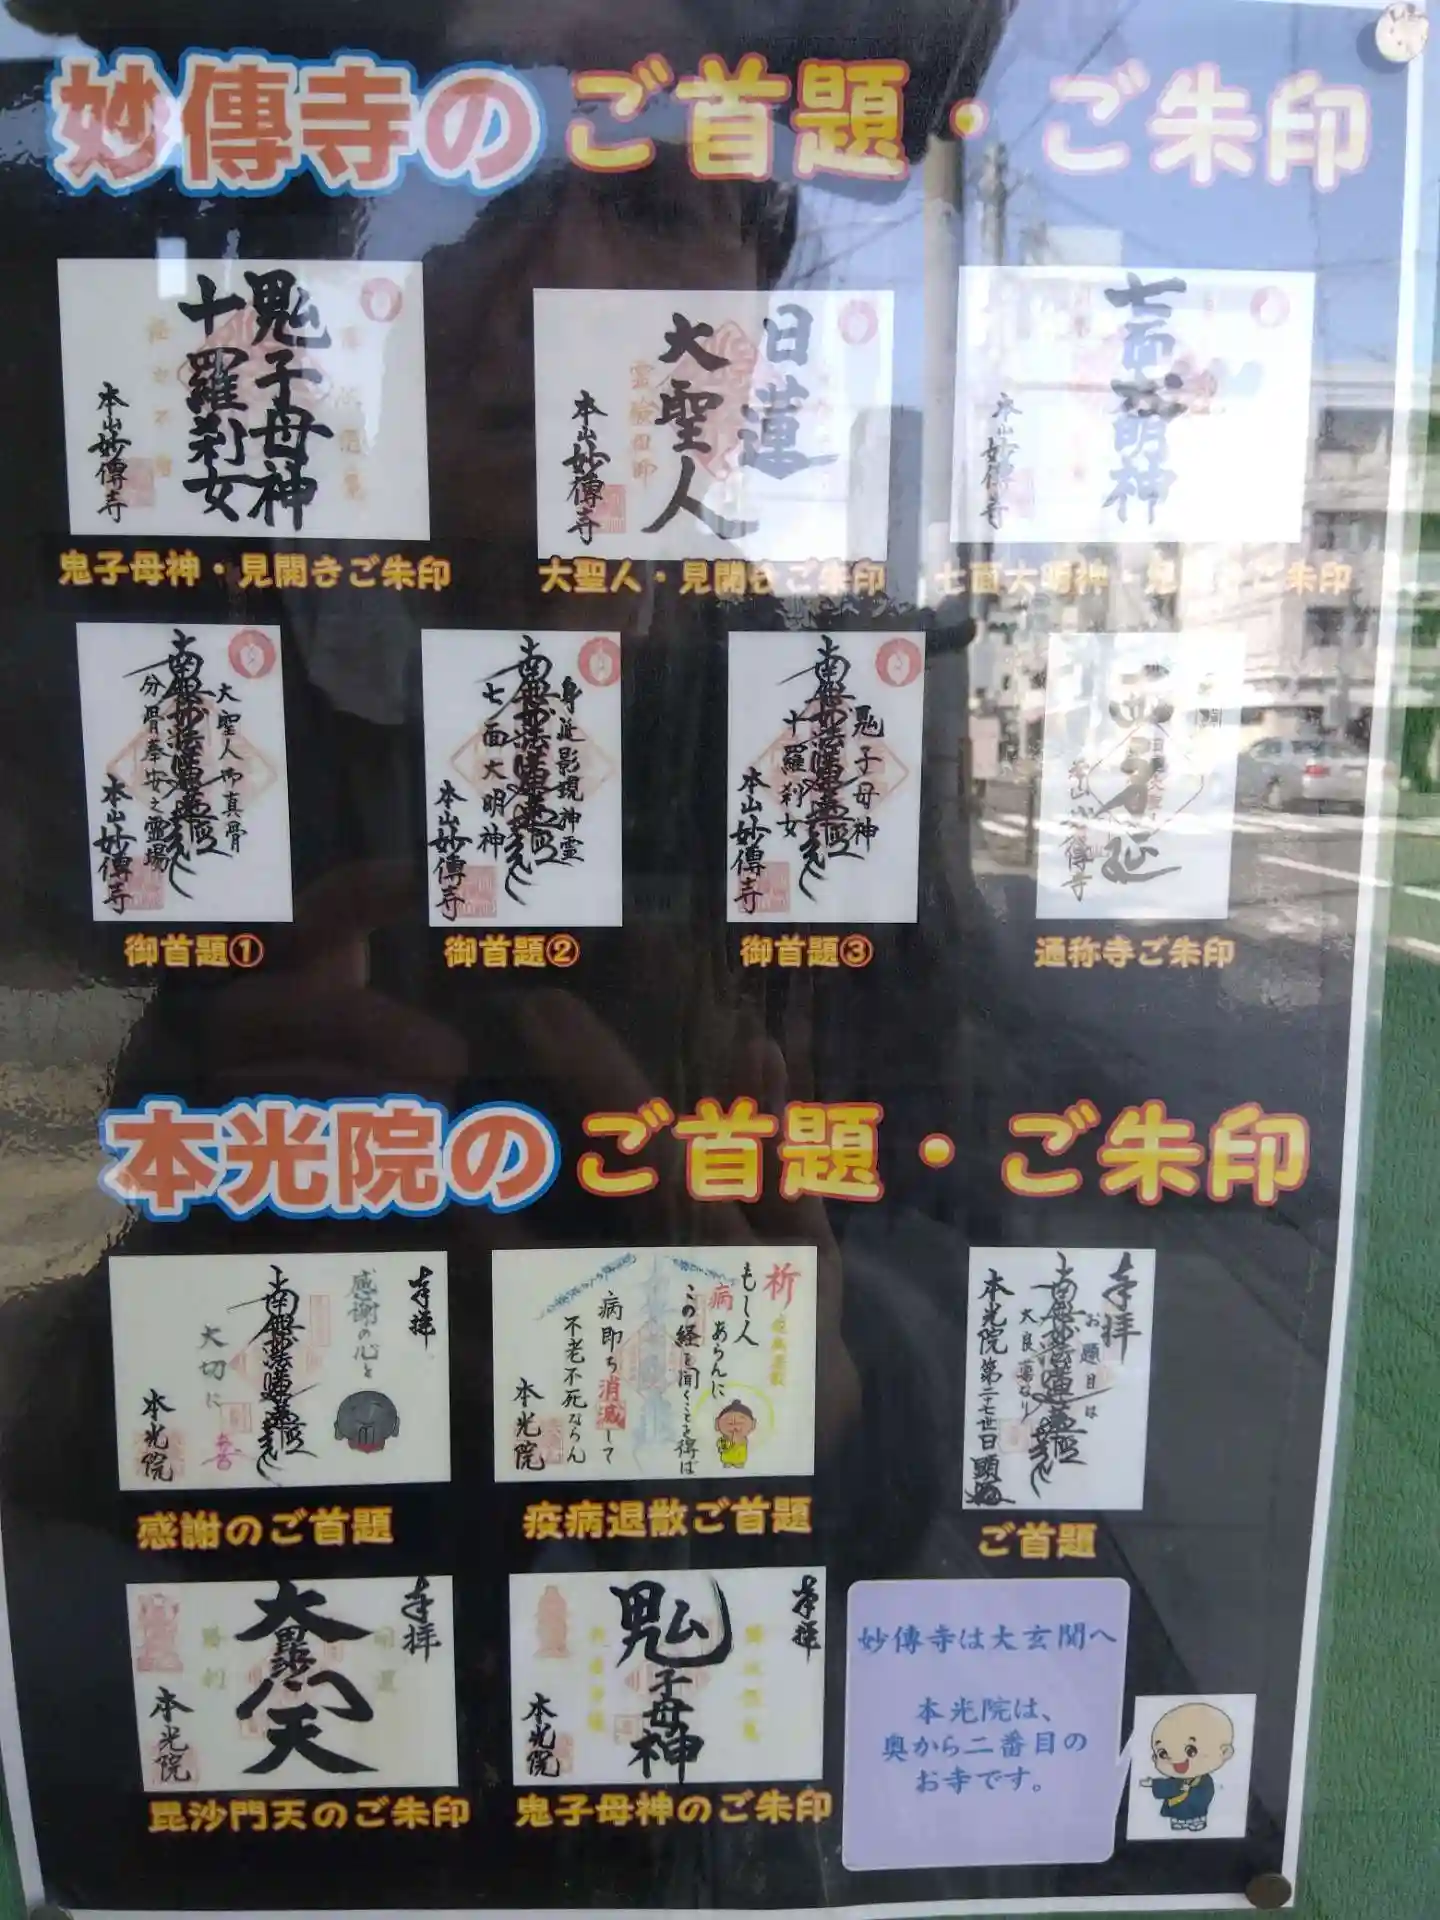 妙傳寺のご首題・ご朱印
鬼子母神
十羅刹女
本山妙傳寺
鬼子母神・見開きご朱印
日蓮
大聖人
本山妙傳寺
大聖人・見開きご朱印
七面大明神
本山妙傳寺
七面大明神・見開きご朱印
大聖人御真骨
南無妙法蓮華経
分骨奉安之霊場
本山妙傳寺
御首題①
身延影現神霊
南無妙法蓮華経
七面大明神
本山妙傳寺
御首題②
鬼子母神
南無妙法蓮華経
十羅刹女
本山妙傳寺
御首題③
西身延
本山妙傳寺
通称寺ご朱印
本光院のご首題・ご朱印
奉拝
感謝の心と
南無妙法蓮華経
大切に
本光院
感謝のご首題
祈
もし人
病あらんに
この経を聞くことを得ば
病即ち消滅して
不老不死ならん
本光院
疫病退散ご首題
奉拝
お題目は
南無妙法蓮華経
大良薬なり
本光院第二十七世日顕
ご首題
奉拝
大毘沙門天
本光院
毘沙門天のご朱印
奉拝
鬼子母神
本光院
鬼子母神のご朱印
妙傳寺は大玄関へ
本光院は、
奥から二番目の
お寺です。